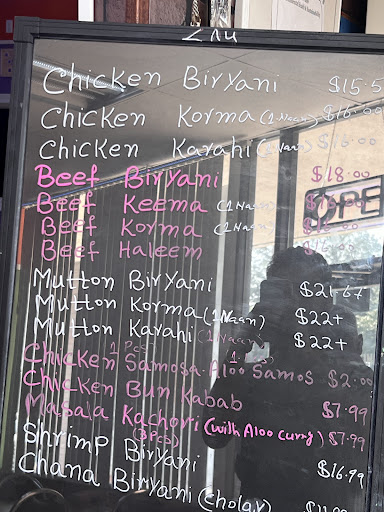 Chicken Biryani $15.5
Chicken Korma (1 Naan) $16.00
Chicken Karahi (1 Naan) $16.00
Beef Biryani $18.00
Beef Keema (1 Naan)
Beef Korma (1 Naan)
Beef Haleem
OPE
Mutton Biryani $21.67
Mutton Korma (1 Naan) $22+
Mutton Karahi (1 Naan) $22+
1 Pcs
Chicken Samosa. Aloo Samos $2.00
Chicken Bun Kabab $7.99
Masala Kachori (with Aloo curry) $7.99
Shrimp Biryani $16.99
Chana Biryani (cholay)